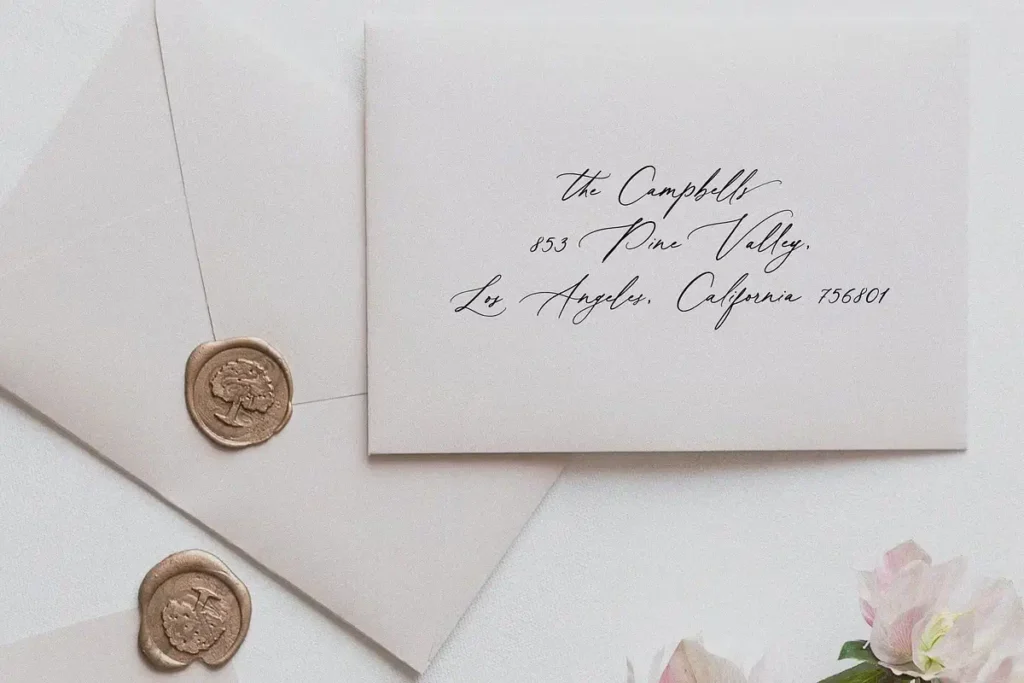 the Campbells
853 Pine Valley,
Los Angeles, California 756801